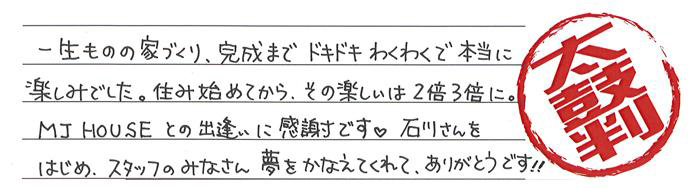 一生ものの家づくり、完成まで ドキドキ わくわくで 本当に
楽しみでした。住み始めてから、その楽しいは 2倍3倍に。
MJ HOUSE との出逢いに 感謝です♥ 石川さんを
はじめ、スタッフのみなさん 夢をかなえてくれて、ありがとうです!!
太鼓判